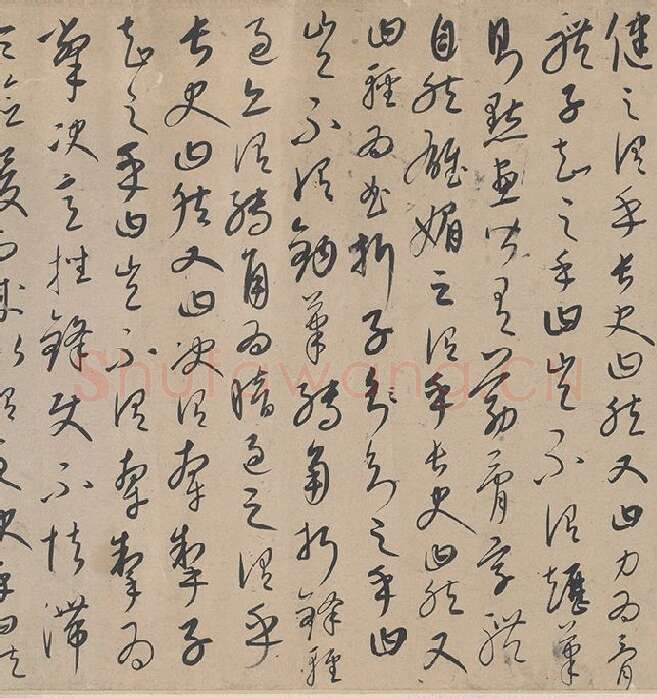 健之謂乎長史曰然又曰力為骨
體子知之乎曰豈不謂趯筆
則點畫皆有筋骨字體
自然雄媚之謂乎長史曰然又
曰輕為曲折子知之乎曰
豈不謂鉤筆轉角折鋒輕
過亦謂轉角為暗過之謂乎
長史曰然又曰決謂牽掣子
知之乎曰豈不謂牽掣為
決意挫鋒使不怯滯
Shufawang.cn